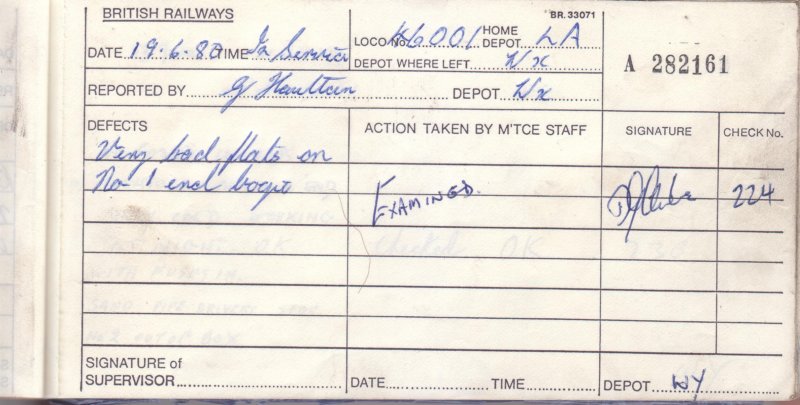 BRITISH RAILWAYS
BR. 33071
DATE 19-6-80 TIME In Service
LOCO No. 46001 HOME DEPOT LA
DEPOT WHERE LEFT Wx
A 282161
REPORTED BY G Haultain DEPOT Wx
DEFECTS
ACTION TAKEN BY M'TCE STAFF
SIGNATURE
CHECK No.
Very bad flats on
No 1 end bogie
EXAMINED.
224
SIGNATURE of
SUPERVISOR
DATE
TIME
DEPOT WY